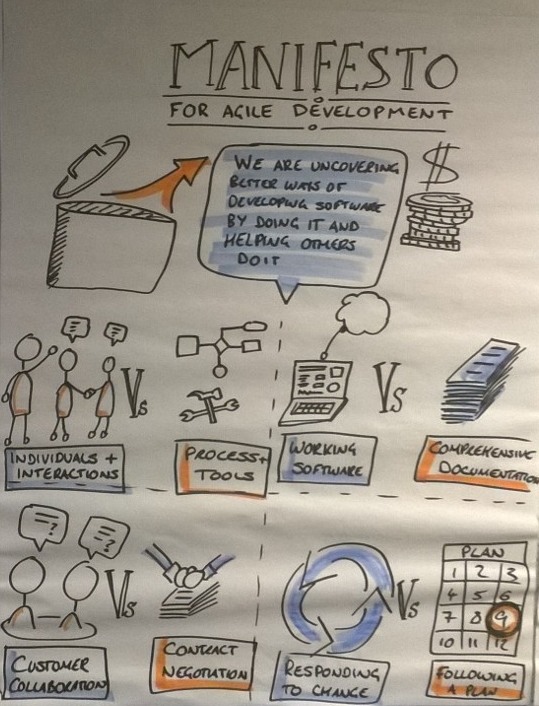 MANIFESTO
FOR AGILE DEVELOPMENT
WE ARE UNCOVERING
BETTER WAYS OF
DEVELOPING SOFTWARE
BY DOING IT AND
HELPING OTHERS
DO IT
$
Vs
INDIVIDUALS +
INTERACTIONS
PROCESS +
TOOLS
Vs
WORKING
SOFTWARE
COMPREHENSIVE
DOCUMENTATION
?
?
Vs
CUSTOMER
COLLABORATION
CONTRACT
NEGOTIATION
Vs
RESPONDING
TO CHANGE
PLAN
1 2 3
4 5 6
7 8 9
10 11 12
FOLLOWING
A PLAN